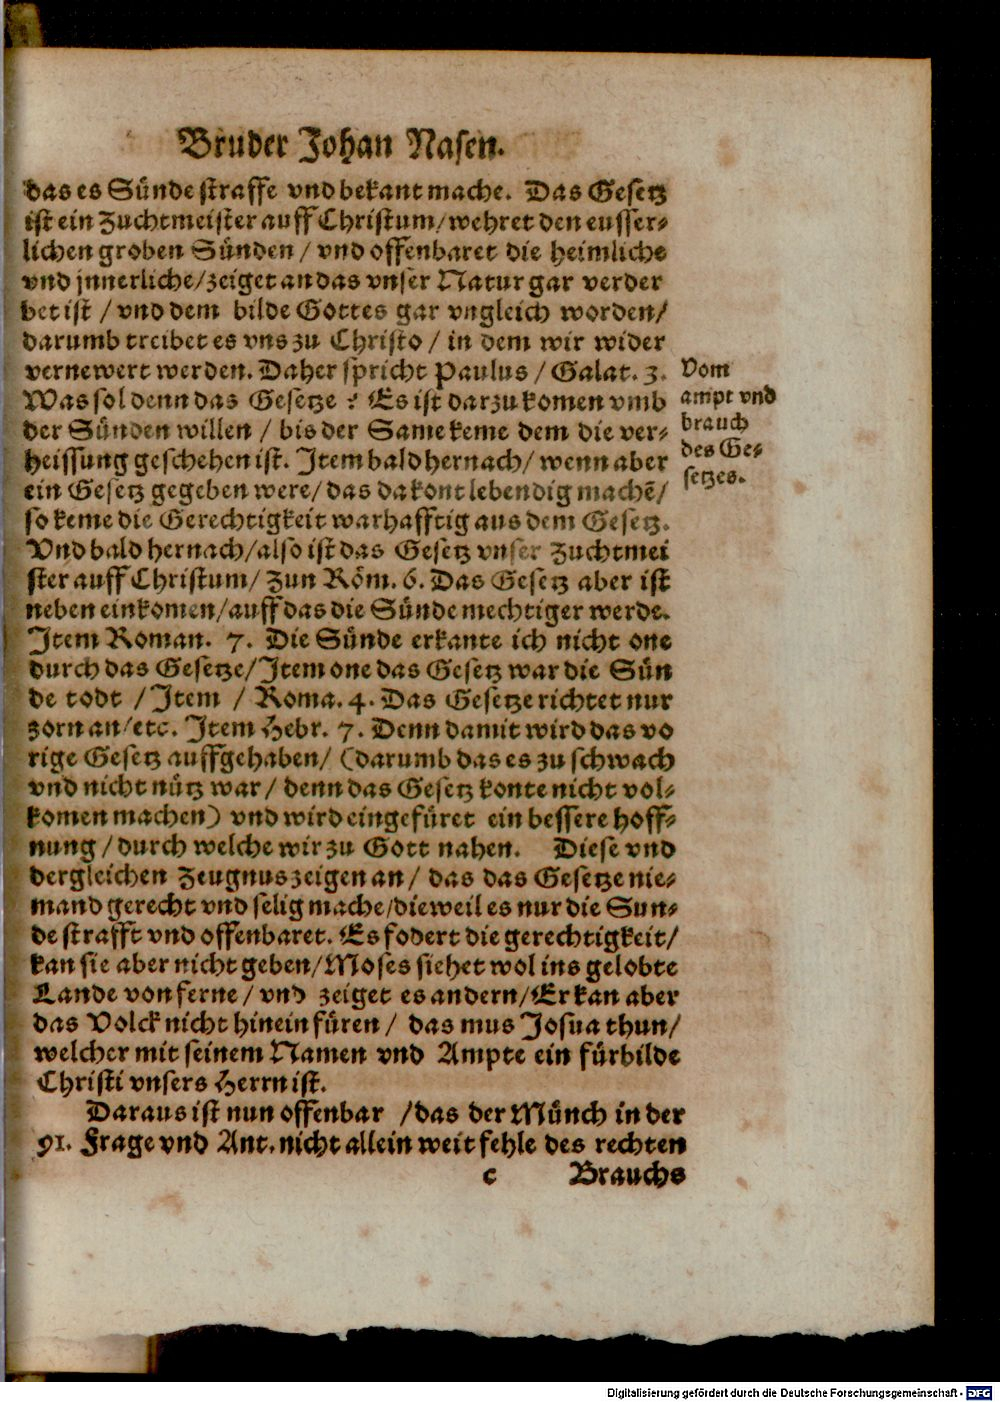 Bruder Johan Nasen.
das es Sünde straffe vnd bekant mache. Das Gesetz
ist ein Zuchtmeister auff Christum/wehret den eusser-
lichen groben Sünden / vnd offenbaret die heimliche
vnd jnnerliche/zeiget an das vnser Natur gar verder
bet ist / vnd dem bilde Gottes gar vngleich worden/
darumb treibet es vns zu Christo / in dem wir wider
vernewert werden. Daher spricht Paulus / Galat. 3.
Was sol denn das Gesetze ? Es ist darzu komen vmb
der Sünden willen / bis der Same keme dem die ver-
heissung geschehen ist. Item bald hernach/ wenn aber
ein Gesetz gegeben were/ das da kont lebendig machē/
so keme die Gerechtigkeit warhafftig aus dem Gesetz.
Vnd bald hernach/also ist das Gesetz vnser Zuchtmei
ster auff Christum/ Zun Röm. 6. Das Gesetz aber ist
neben einkomen/auff das die Sünde mechtiger werde.
Item Roman. 7. Die Sünde erkante ich nicht one
durch das Gesetze/Item one das Gesetz war die Sün
de todt / Item / Roma. 4. Das Gesetze richtet nur
zorn an/etc. Item Hebr. 7. Denn damit wird das vo
rige Gesetz auffgehaben/ (darumb das es zu schwach
vnd nicht nütz war/ denn das Gesetz konte nicht vol-
komen machen) vnd wird eingefüret ein bessere hoff-
nung / durch welche wir zu Gott nahen. Diese vnd
dergleichen Zeugnus zeigen an/ das das Gesetze nie-
mand gerecht vnd selig mache/dieweil es nur die Sun-
de strafft vnd offenbaret. Es fodert die gerechtigkeit/
kan sie aber nicht geben/Moses siehet wol ins gelobte
Lande von ferne / vnd zeiget es andern/Er kan aber
das Volck nicht hinein füren / das mus Josua thun/
welcher mit seinem Namen vnd Ampte ein fürbilde
Christi vnsers Herrn ist.
Daraus ist nun offenbar /das der Münch in der
91. Frage vnd Ant. nicht allein weit fehle des rechten
c Brauchs
Vom
ampt vnd
brauch
des Ge-
setzes.
Digitalisierung gefördert durch die Deutsche Forschungsgemeinschaft - DFG